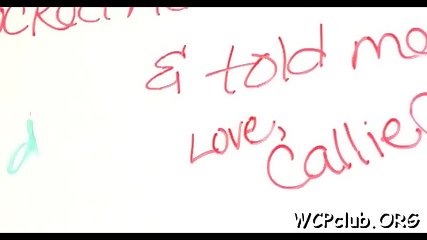 & told me
d
Love,
Callie
WCPclub.ORG